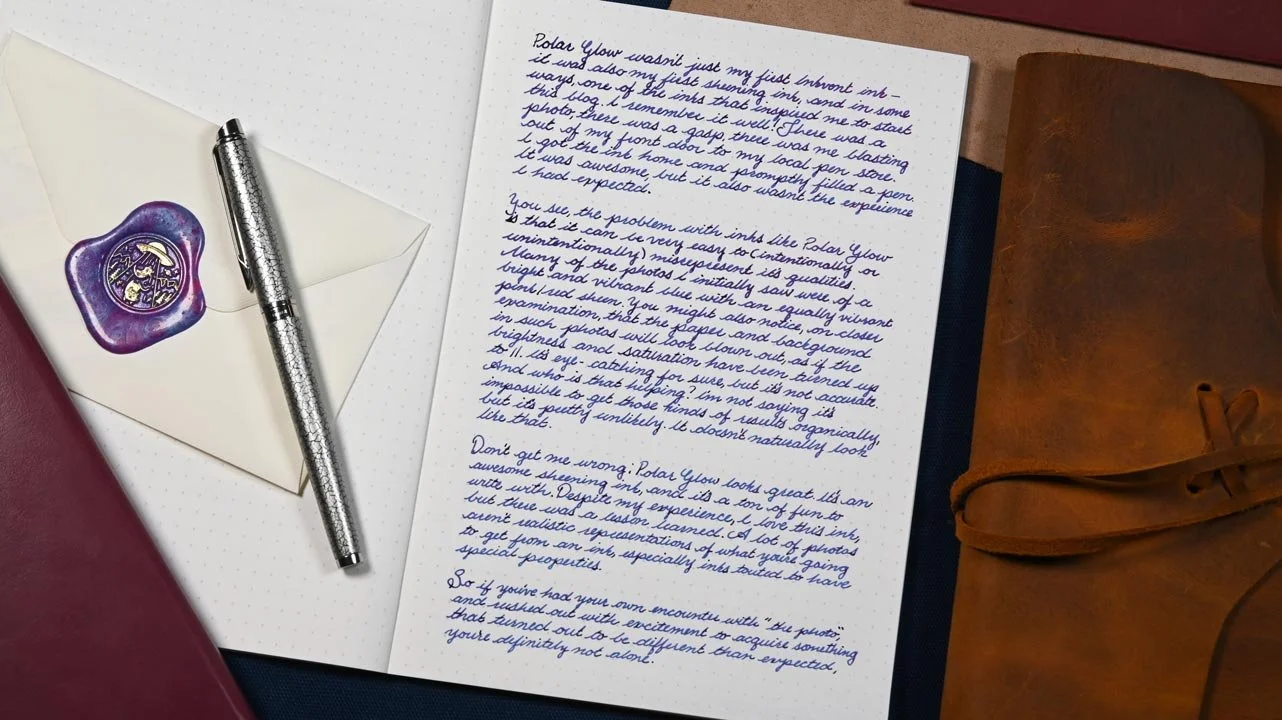 Polar Glow wasn't just my first Inkvent ink –
it was also my first sheening ink, and in some
ways, one of the inks that inspired me to start
this blog. I remember it well! There was a
photo, there was a gasp, there was me blasting
out of my front door to my local pen store.
I got the ink home and promptly filled a pen.
It was awesome, but it also wasn't the experience
I had expected.
You see, the problem with inks like Polar Glow
is that it can be very easy to (intentionally or
unintentionally) misrepresent its qualities.
Many of the photos I initially saw were of a
bright and vibrant blue with an equally vibrant
pink/red sheen. You might also notice, on closer
examination, that the paper and background
in such photos will look blown out, as if the
brightness and saturation have been turned up
to 11. It's eye-catching for sure, but it's not accurate.
And who is that helping? I'm not saying it's
impossible to get those kinds of results organically,
but it's pretty unlikely. It doesn't naturally look
like that.
Don't get me wrong; Polar Glow looks great. It's an
awesome sheening ink, and it's a ton of fun to
write with. Despite my experience, I love this ink,
but there was a lesson learned. A lot of photos
aren't realistic representations of what you're going
to get from an ink, especially inks touted to have
special properties.
So if you've had your own encounter with "the photo",
and rushed out with excitement to acquire something
that turned out to be different than expected,
you're definitely not alone.